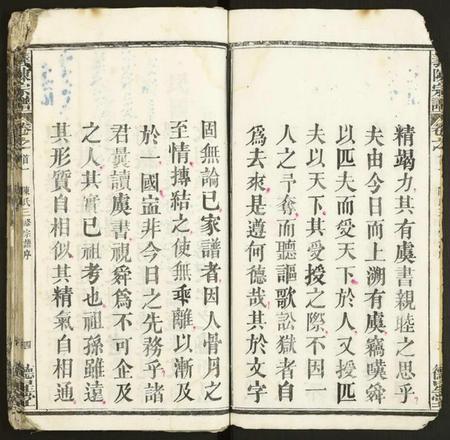 精竭力其有虞書親睦之思乎
夫由今日而上溯有虞竊嘆舜
以匹夫而受天下於人又授匹
夫以天下其受授之際不因一
人之予奪而聽謳歌訟獄者自
為去來是遵何德哉其於文字
固無論已家譜者因人骨肉之
至情摶結之使無乖離以漸及
於一國盍非今日之先務乎諸
君曩讀虞書視舜為不可企及
之人其實已祖考也祖孫雖遠
其形質自相似其精氣自相通
陳宗譜
卷之首
陳氏三修宗譜序
四